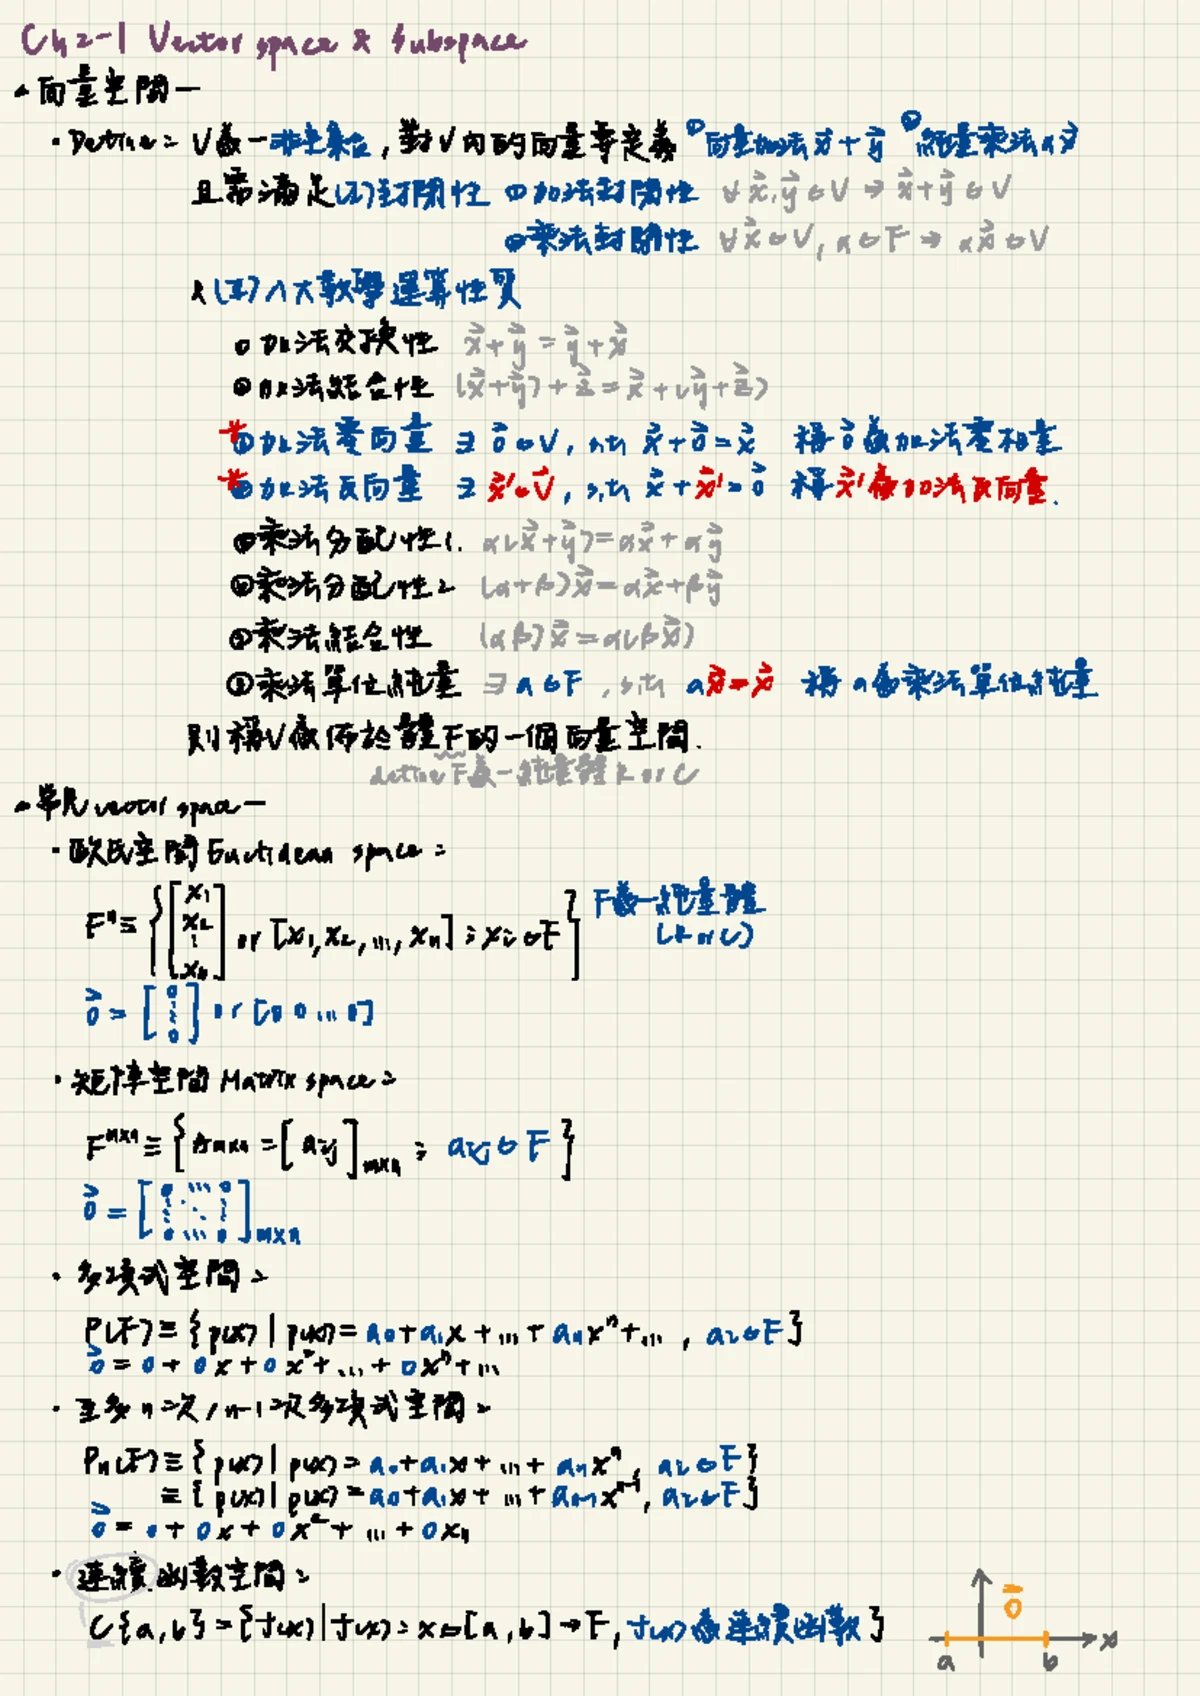 Ch 2-1 Vector space & Subspace
向量空間—
· Define: V為一非空集合, 對V內的向量等定義 ①向量加法 x⃗+y⃗ ②純量乘法 αx⃗
且需滿足(I)封閉性 ①加法封閉性 ∀x⃗,y⃗∈V → x⃗+y⃗∈V
②乘法封閉性 ∀x⃗∈V, α∈F → αx⃗∈V
&(II)八大數學運算性質
①加法交換性 x⃗+y⃗=y⃗+x⃗
②加法結合性 (x⃗+y⃗)+z⃗=x⃗+(y⃗+z⃗)
*③加法零向量 ∃ 0⃗∈V, s.th x⃗+0⃗=x⃗ 稱0⃗為加法零向量
*④加法反向量 ∃ x⃗'∈V, s.th x⃗+x⃗'=0⃗ 稱x⃗'為加法反向量.
⑤乘法分配性1. α(x⃗+y⃗)=αx⃗+αy⃗
⑥乘法分配性2 (α+β)x⃗=αx⃗+βy⃗
⑦乘法結合性 (αβ)x⃗=α(βx⃗)
⑧乘法單位純量 ∃ a∈F, s.th ax⃗=x⃗ 稱a為乘法單位純量
則稱V為佈於體F的一個向量空間.
define F為一純量體 R or C
常見vector space—
· 歐氏空間 Euclidean space:
Fⁿ≡{[x₁ x₂ ⋮ xₙ] or [x₁,x₂,...,xₙ] ; xᵢ∈F} F為一純量體
(R or C)
0⃗=[0 ⋮ 0] or [0 0 ... 0]
· 矩陣空間 Matrix space:
Fᵐˣⁿ≡{Aₘₓₙ=[aᵢⱼ]ₘₓₙ ; aᵢⱼ∈F}
0⃗=[0 ... 0 ⋮ ⋱ ⋮ 0 ... 0]ₘₓₙ
· 多項式空間:
P(F)≡{p(x)|p(x)=a₀+a₁x+...+aₙxⁿ+..., aᵢ∈F}
0⃗=0+0x+0x²+...+0xⁿ+...
· 至多n次/n-1次多項式空間:
Pₙ(F)≡{p(x)|p(x)=a₀+a₁x+...+aₙxⁿ, aᵢ∈F}
≡{p(x)|p(x)=a₀+a₁x+...+aₙ₋₁xⁿ⁻¹, aᵢ∈F}
0⃗=0+0x+0x²+...+0xₙ
· 連續函數空間:
C{a,b}={f(x)|f(x):x∈[a,b]→F, f(x)為連續函數}
0⃗
x
a b